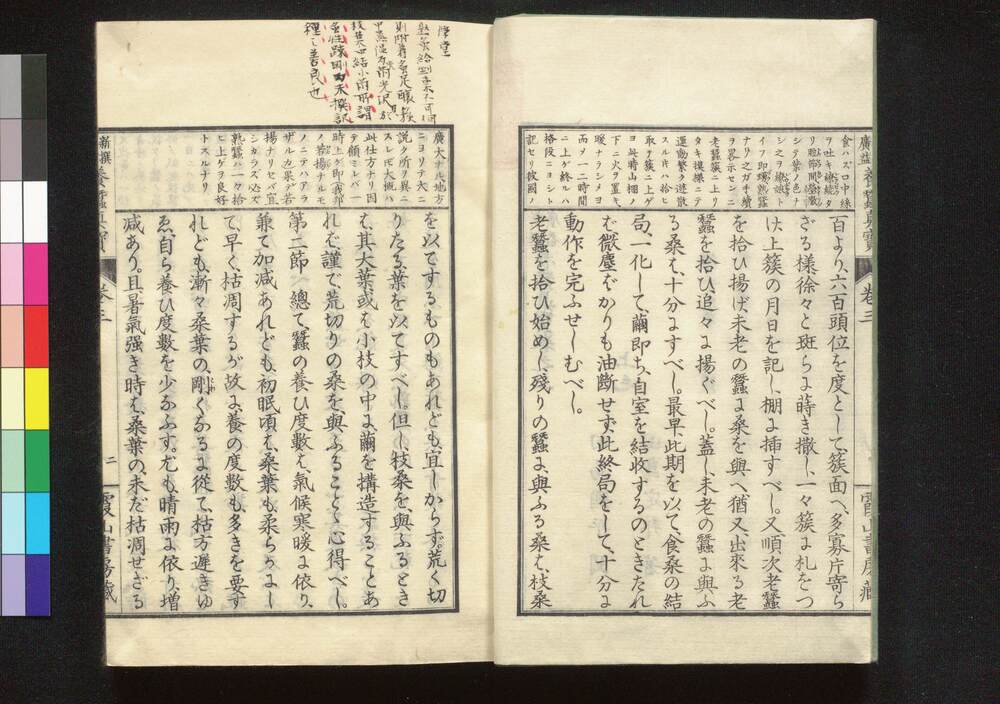 廣益養蠶眞寶
卷三
霞山書房藏
食ハズ口中絲
ヲ吐キ繼續タ
シテ紫ノ色ナ
シ之ヲ
イフ即熟蠶
ナリ之ガ手續
ヲ畧示センニ
老蠶簇ニ上リ
タキ摸樣ニテ
運動繁ク逃散
スルキハ拾ヒ
取テ簇ニ上ゲ
ヨ此時山棚ノ
下ニ火ヲ置キ
暖ナラシメヨ
而ソ一二時間
ニ上ゲ終ルハ
格段ニヨシト
記セリ故國ノ
百より、六百頭位を度として、簇面へ、多寡片寄ら
ざる樣、徐々と斑らに蒔き撒し、一々簇に札をつ
け、上簇の月日を記し、棚に挿すべし。又順次老蠶
を拾ひ揚げ、未老の蠶に桑を與へ、猶又、出來る老
蠶を拾ひ追々に揚ぐべし。蓋し、未老の蠶に與ふ
る桑は、十分にすべし。最早、此期を以て、食桑の結
局、一化して、繭即ち、自室を結收するのときたれ
ば、微塵ばかりも油斷せず、此終局をして、十分に
動作を完ふせしむべし。
老蠶を拾ひ始めし、殘りの蠶に、與ふる桑は、枝桑
廣大ナル地方
ニヨリテ大ニ
說ク所リ異ニ
スレ𪜈大概ハ
此仕方ナリ因
テ顧ミレバ一
時上ゲ即(我邦
ノ若揚ナルモ
ノ)ニテハアラ
ザルカ果テ若
揚ナリセバ宜
シカラズ必ズ
熟蠶ハ一々拾
ヒ上ゲヲ良好
トスルナリ
を、以てするものもあれども、宜しからず。荒く切
りたる葉を、以てすべし。但し、枝桑を、與ふるとき
は、其大葉、或は、小枝の中に、繭を搆造することあ
れば、謹で、荒切りの桑を、與ふることゝ心得べし。
第二節 總て、蠶の養ひ度數は、氣候寒暖に依り、
兼て、加減あれども、初眠頃は、桑葉も、柔らかにし
て、早く、枯凋するが故に、養の度數も、多きを要す
れども、漸々桑葉の、剛くなるに從て、枯方遲きゆ
ゑ、自ら養ひ度數を、少なふす。尤も、晴雨に依り、增
減あり。且、暑氣强き時は、桑葉の、未だ枯凋せざる
新撰養蠶眞寶
卷三
二
霞山書房藏